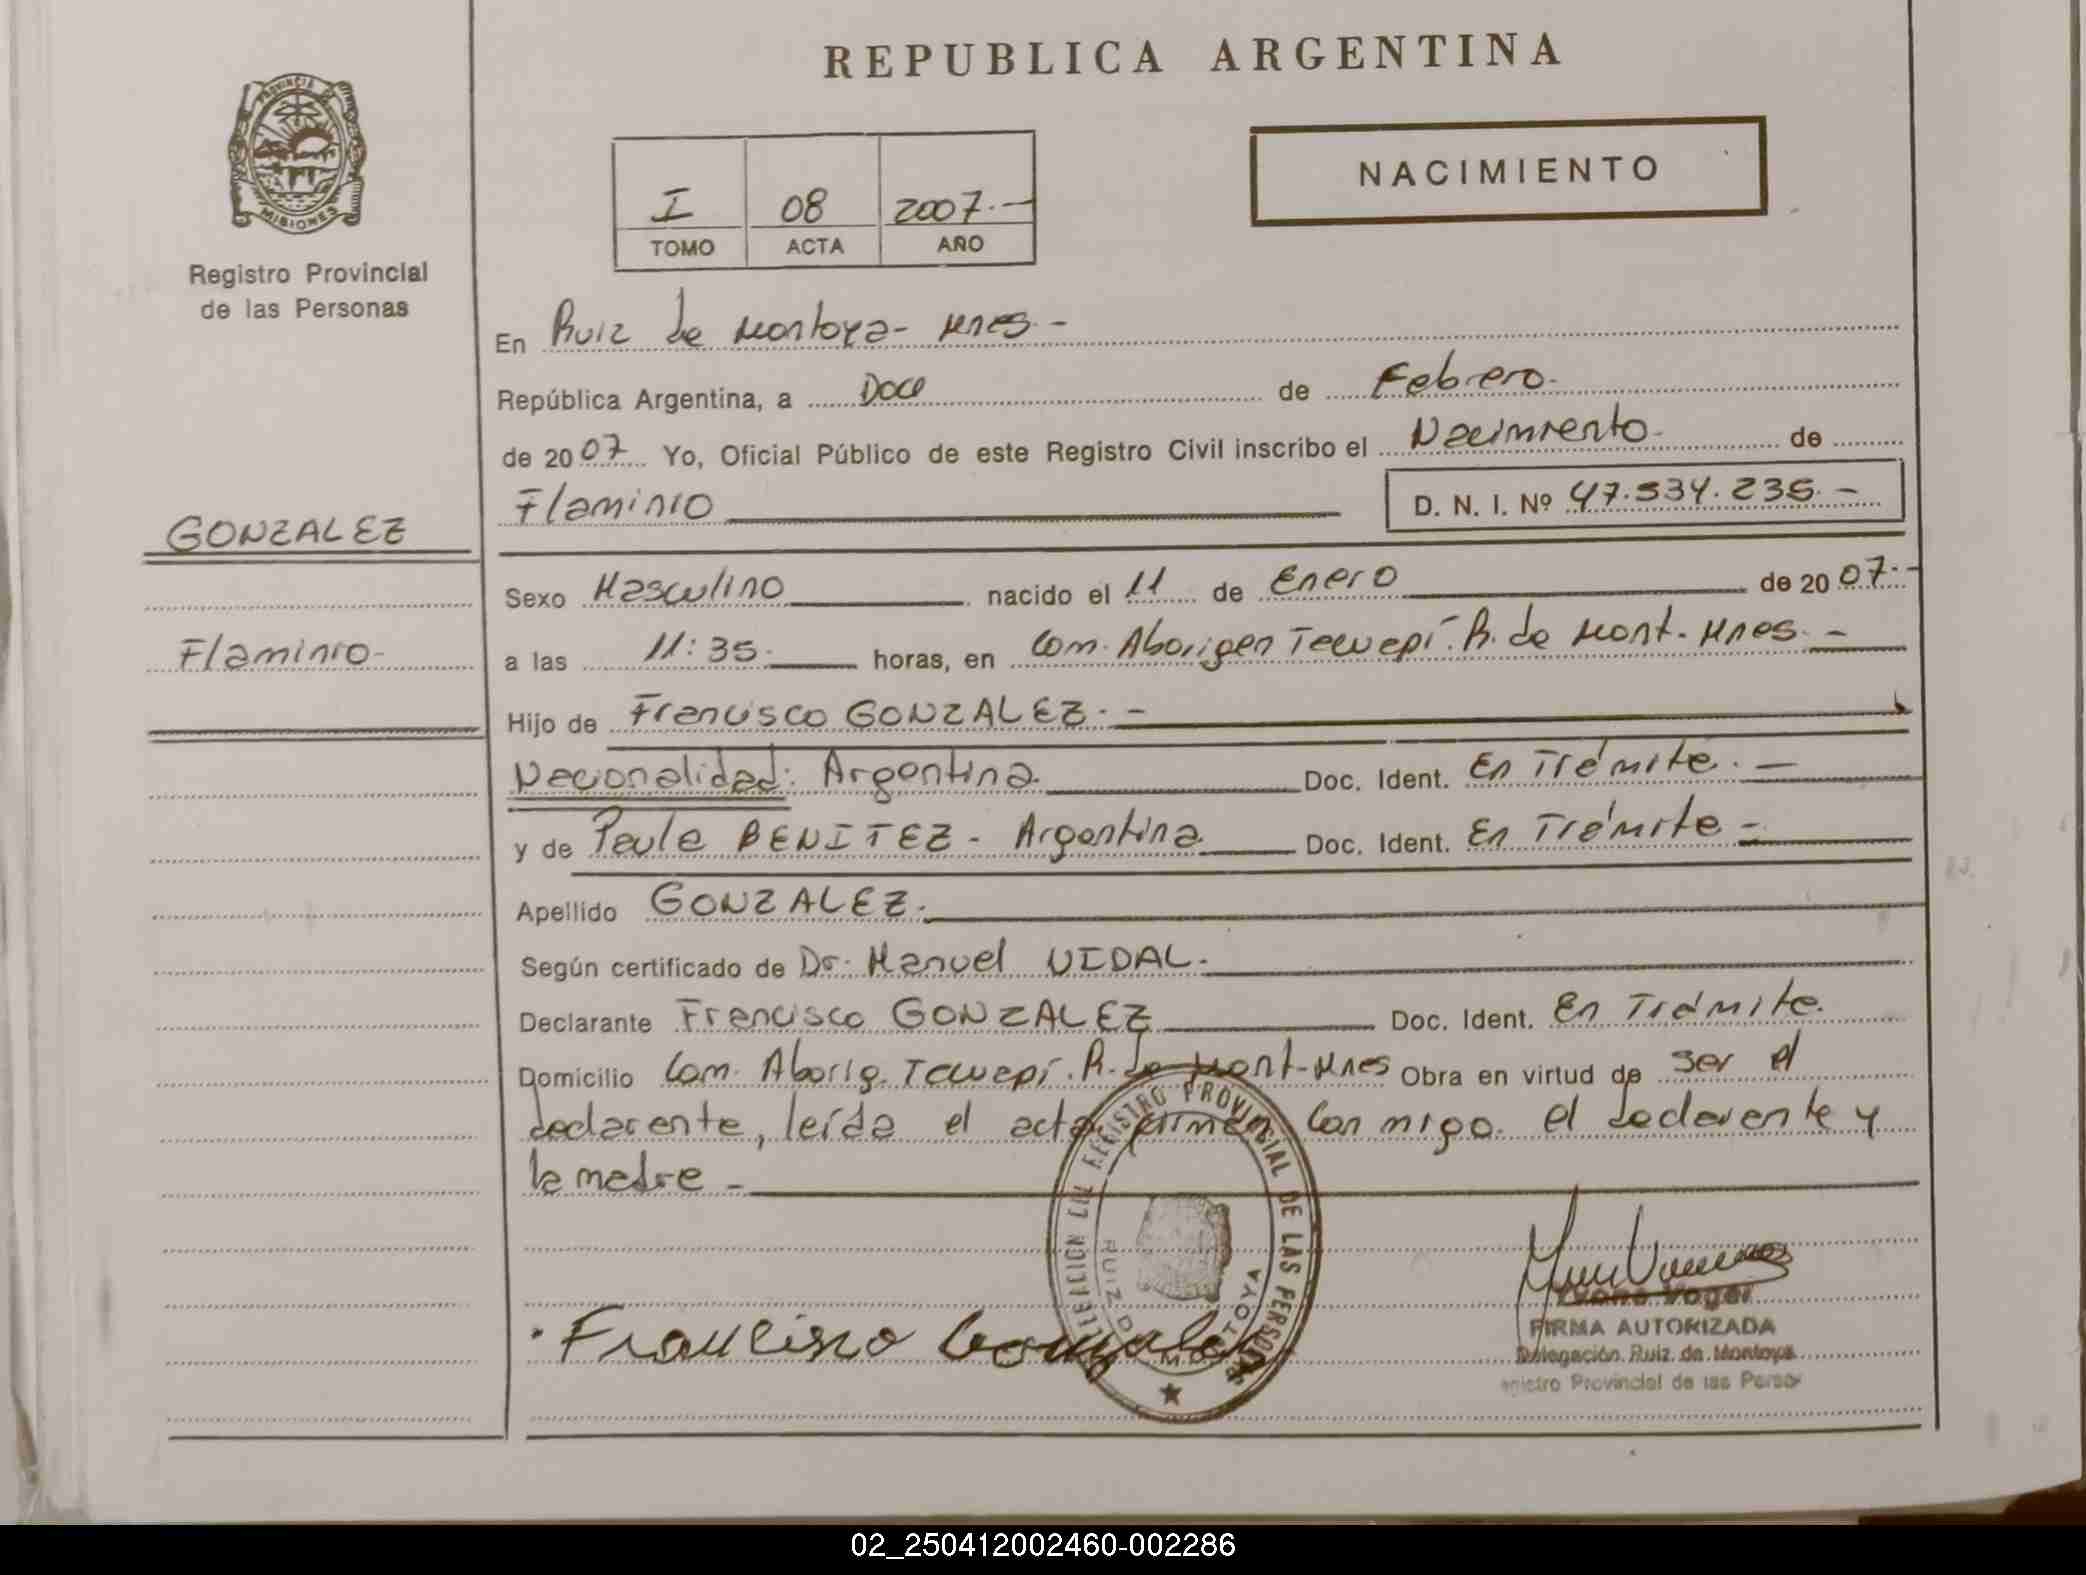 REPUBLICA ARGENTINA
PROVINCIA DE
MISIONES
Registro Provincial
de las Personas
I 08 2007.-
TOMO ACTA AÑO
NACIMIENTO
En Ruiz de Montoya- Mnes.-
República Argentina, a Doce de Febrero.
de 2007 Yo, Oficial Público de este Registro Civil inscribo el Nacimiento de
Flaminio D. N. I. Nº 47.534.235.-
GONZALEZ
Flaminio-
Sexo Masculino nacido el 11 de Enero de 2007.-
a las 11:35. horas, en Com. Aborigen Tecuepí. R. de Mont. Mnes.-
Hijo de Francisco GONZALEZ.-
Nacionalidad: Argentina. Doc. Ident. En Trámite.-
y de Paula BENITEZ - Argentina Doc. Ident. En Trámite-
Apellido GONZALEZ.
Según certificado de Dr. Manuel VIDAL.
Declarante Francisco GONZALEZ Doc. Ident. En Trámite.
Domicilio Com. Aborig. Tecuepí. R. de Mont-Mnes Obra en virtud de ser el
declarante, leída el acta firman conmigo el declarante y
la madre-
REGISTRO PROVINCIAL DE LAS PERSONAS
RUIZ DE MONTOYA
Francisco Gonzalez
Ivone Voger
FIRMA AUTORIZADA
Delegación Ruiz de Montoya
egistro Provincial de las Perso
02_250412002460-002286